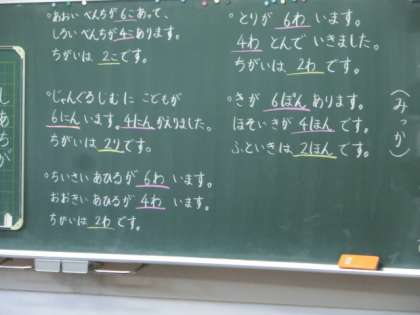 ○あおい べんちが 6こあって、
しろい べんちが 4こ あります。
ちがいは 2こです。
○じゃんぐるじむに こどもが
6にんいます。4にんかえりました。
ちがいは 2りです。
○ちいさい あひるが 6わ います。
おおきい あひるが 4わ います。
ちがいは 2わ です。
○とりが 6わ います。
4わ とんで いきました。
ちがいは 2わ です。
○きが 6ぽん あります。
ほそいきが 4ほん です。
ふといきは 2ほん です。
(みっか)